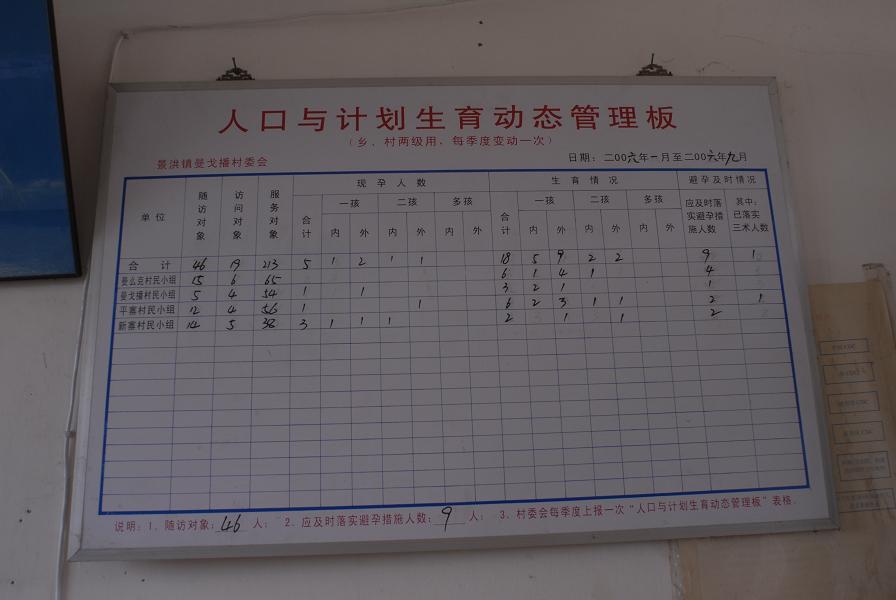 人口与计划生育动态管理板
（乡、村两级用，每季度变动一次）
景洪镇曼戈播村委会 日期：二00六年一月至二00六年九月
单位 随访对象 访问对象 服务对象 现孕人数 生育情况 避孕及时情况
合计 一孩 二孩 多孩 合计 一孩 二孩 多孩 应及时落实避孕措施人数 其中：已落实三术人数
内 外 内 外 内 外 内 外 内 外 内 外
合计 46 19 213 5 1 2 1 1 18 5 9 2 2 9 1
曼么克村民小组 15 6 65 6 1 4 1 4
曼戈播村民小组 5 4 54 1 1 3 2 1 1
平寨村民小组 12 4 56 1 1 6 2 3 1 1 2 1
新寨村民小组 14 5 38 3 1 1 1 2 1 1 2
说明：1、随访对象：46人； 2、应及时落实避孕措施人数：9人； 3、村委会每季度上报一次“人口与计划生育动态管理板”表格．